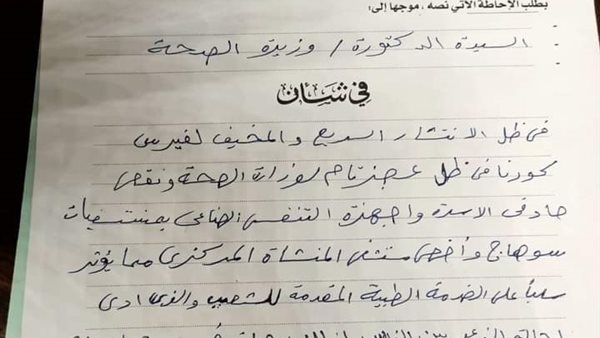 بطلب الإحاطة الآتي نصه ، موجها إلى:
السيدة الدكتورة / وزيرة الصحة
في شان
فى ظل الانتشار السريع والمخيف لفيرس
كورونا فى ظل عجز تام لوزارة الصحة ونقص
حاد فى الاسرة واجهزة التنفس الصناعى بمستشفيات
سوهاج وأخص مستشفى المنشاة المركزى مما يؤثر
سلباً على الخدمة الطبية المقدمة للشعب والذى ادى